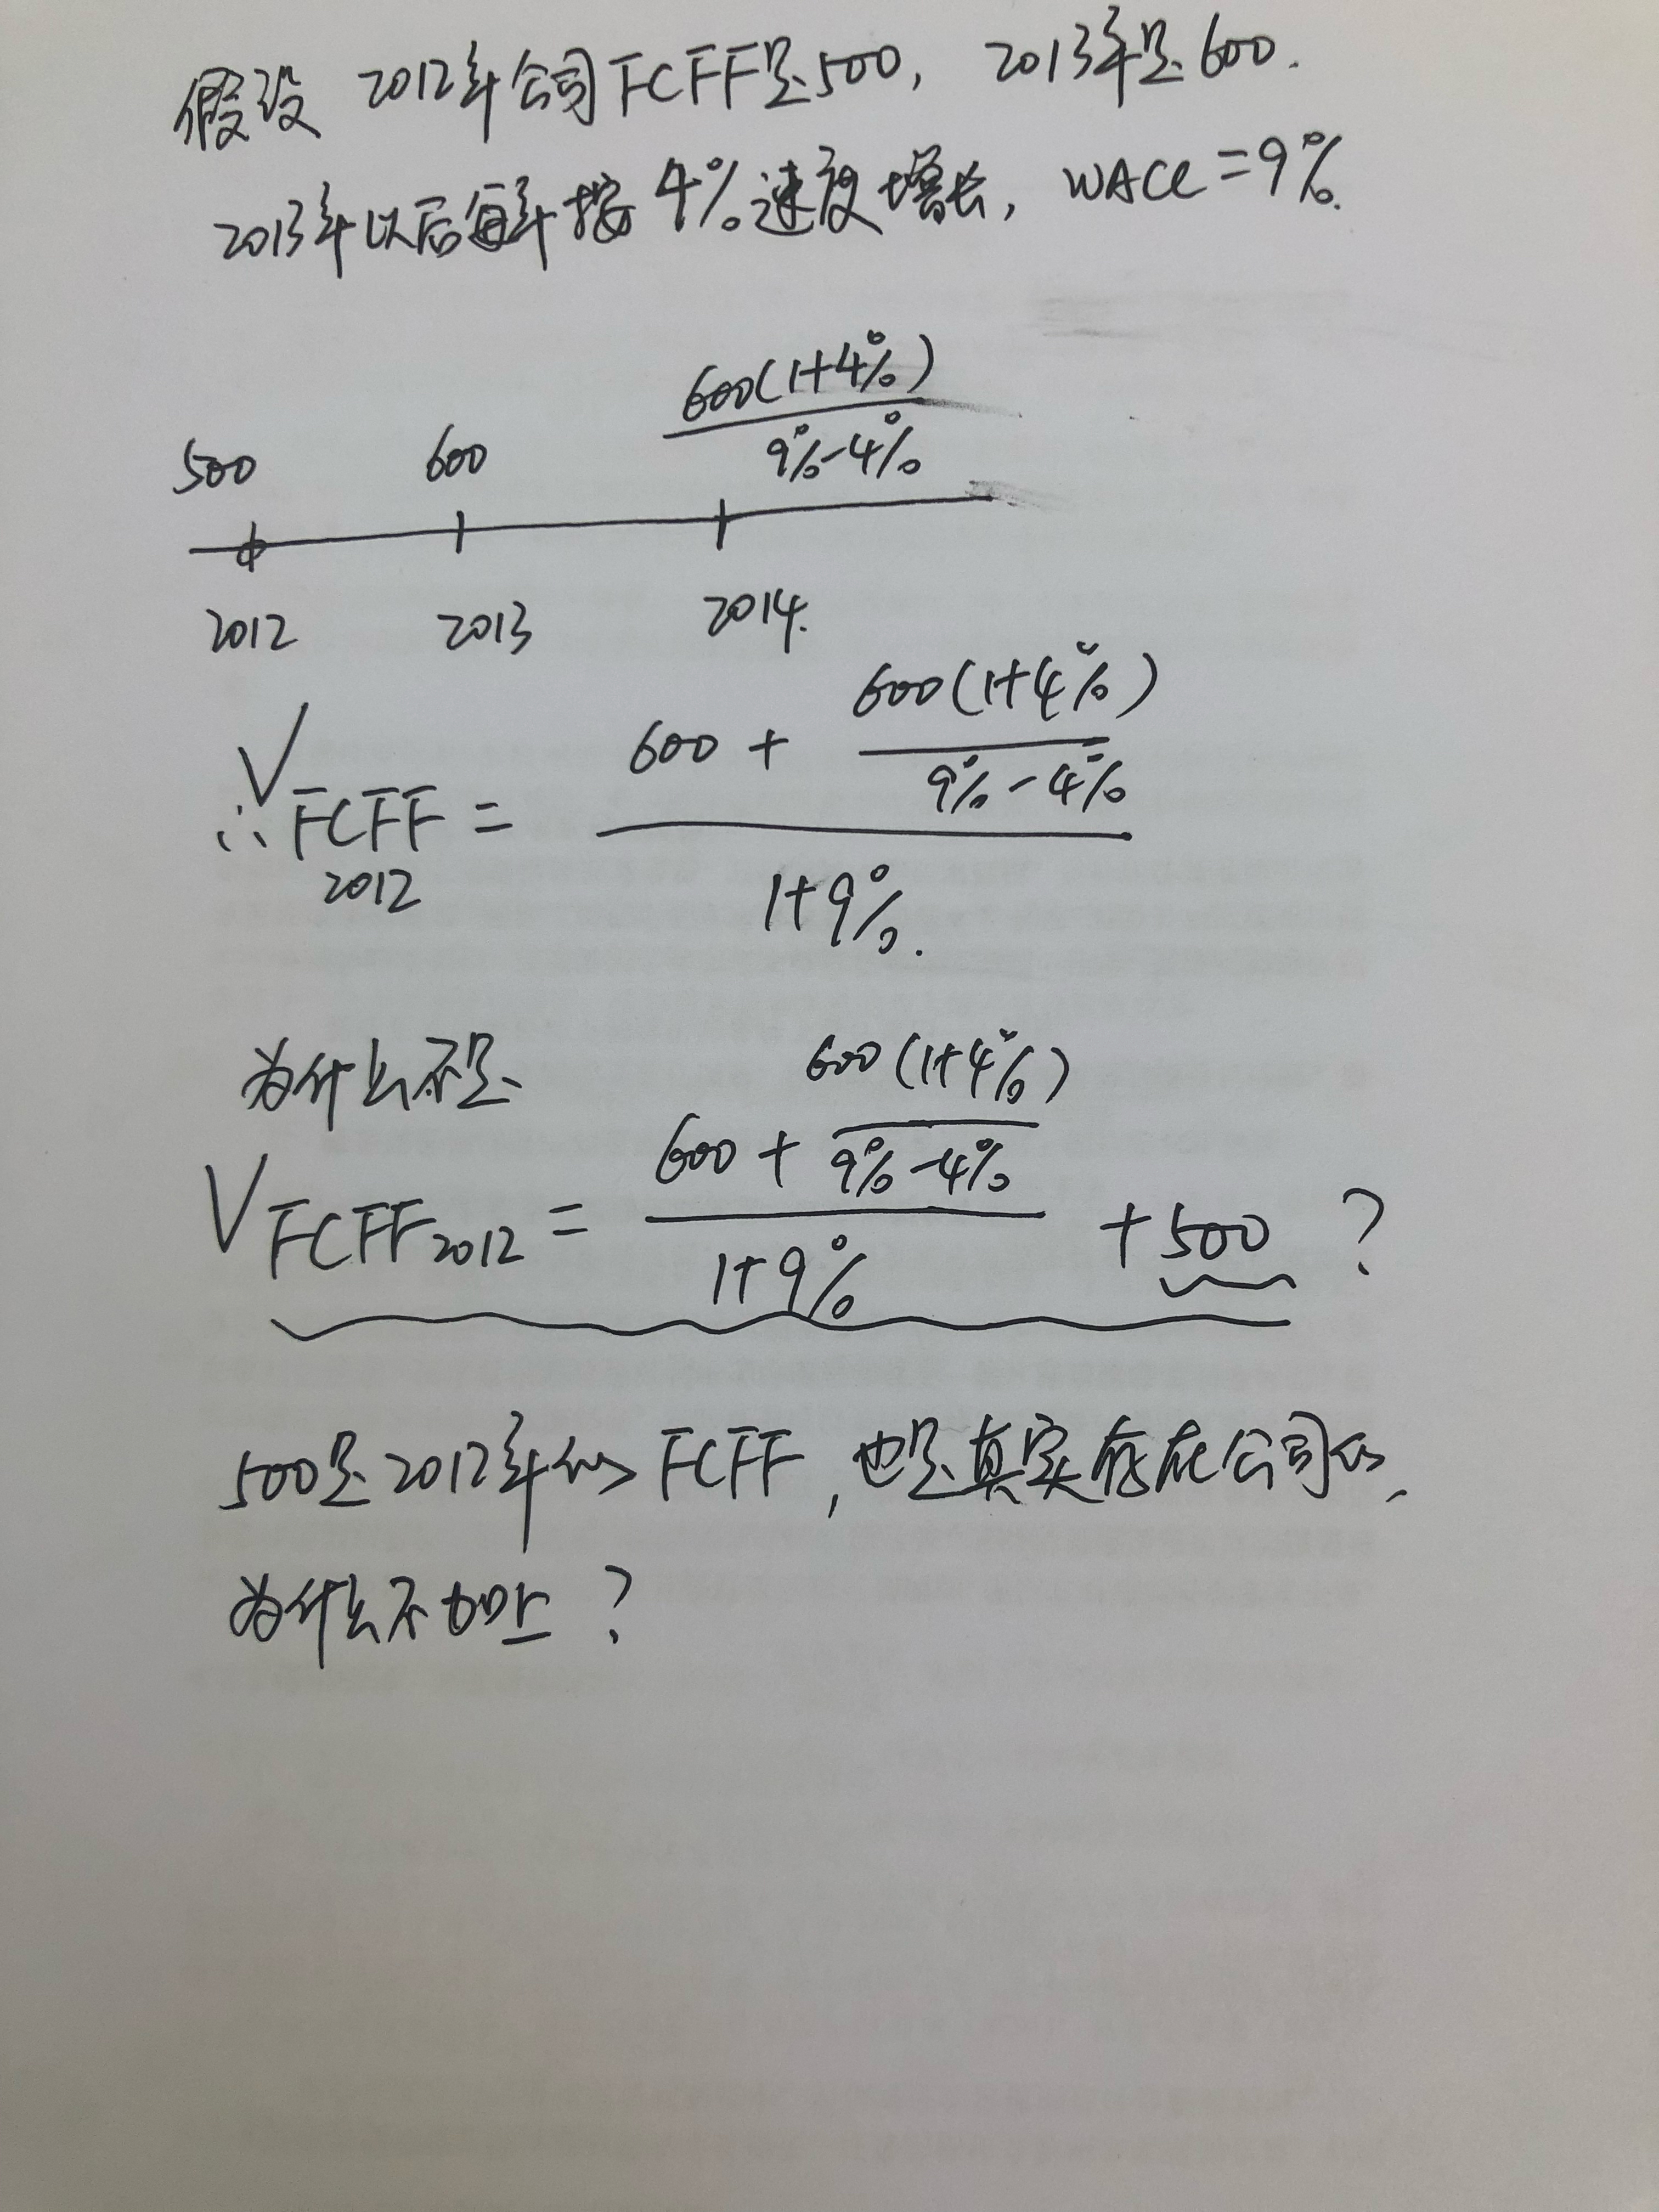 假设 2012年公司FCFF是500, 2013年是600.
2013年以后每年按4%速度增长, WACC=9%.
600(1+4%)
500 600 9%-4%
2012 2013 2014.
600(1+4%)
600 + 9%-4%
∴ V FCFF 2012 =
1+9%.
为什么不是 600(1+4%)
600 + 9%-4%
V FCFF 2012 = + 500 ?
1+9%
500是2012年的FCFF, 也是真实存在公司的,
为什么不加上?